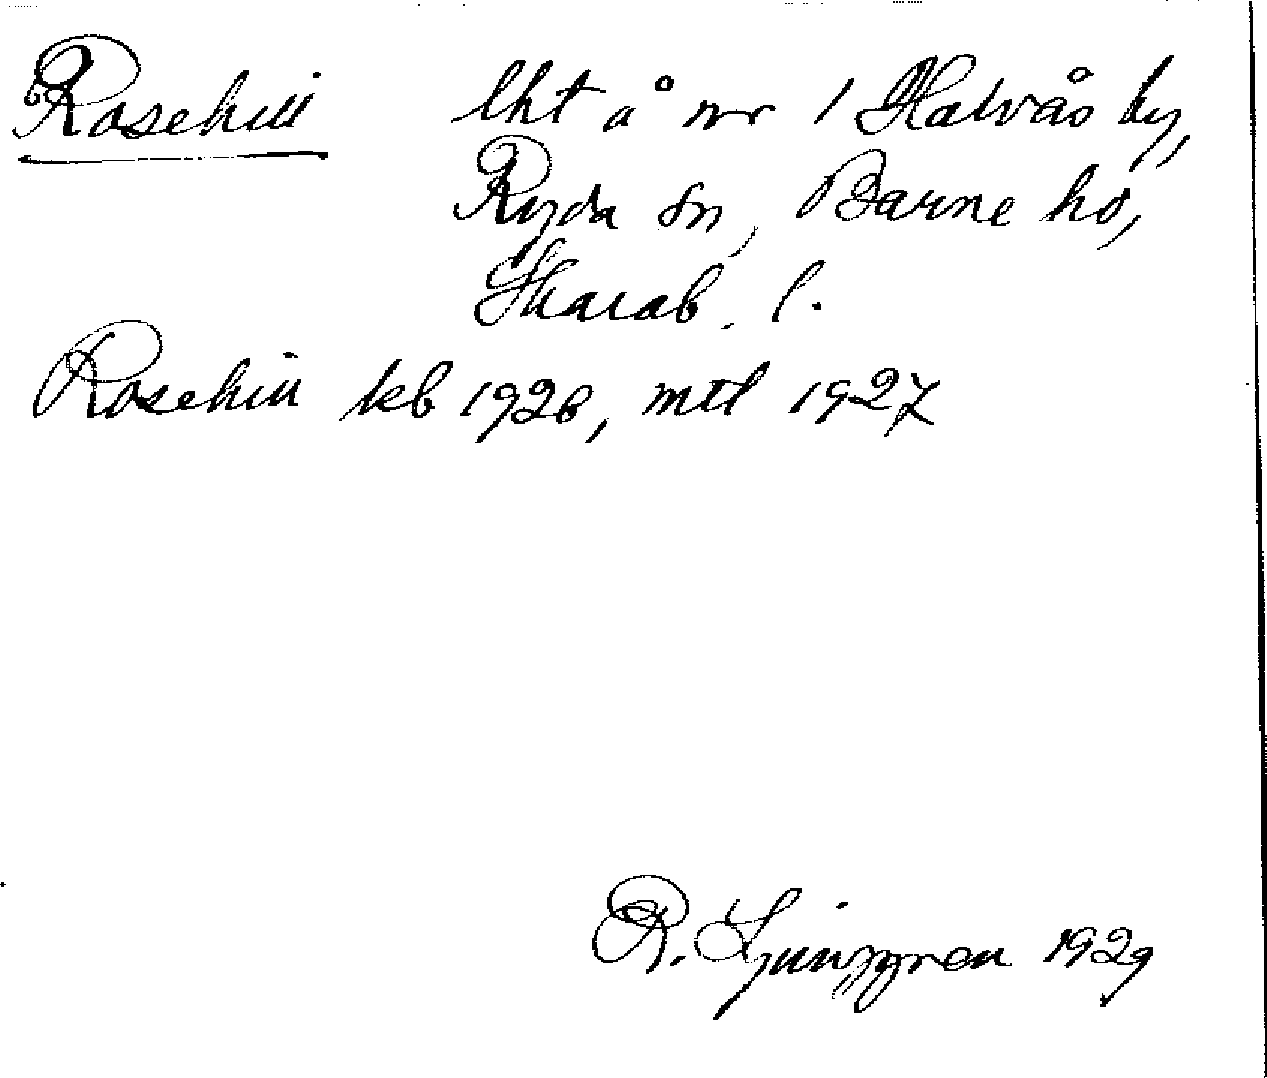 Rosehill lht å nr 1 Halvås by,
Ryda sn, Barne hd,
Skarab. l.
Rosehill kb 1926, mtl 1927
R. Ljunggren 1929